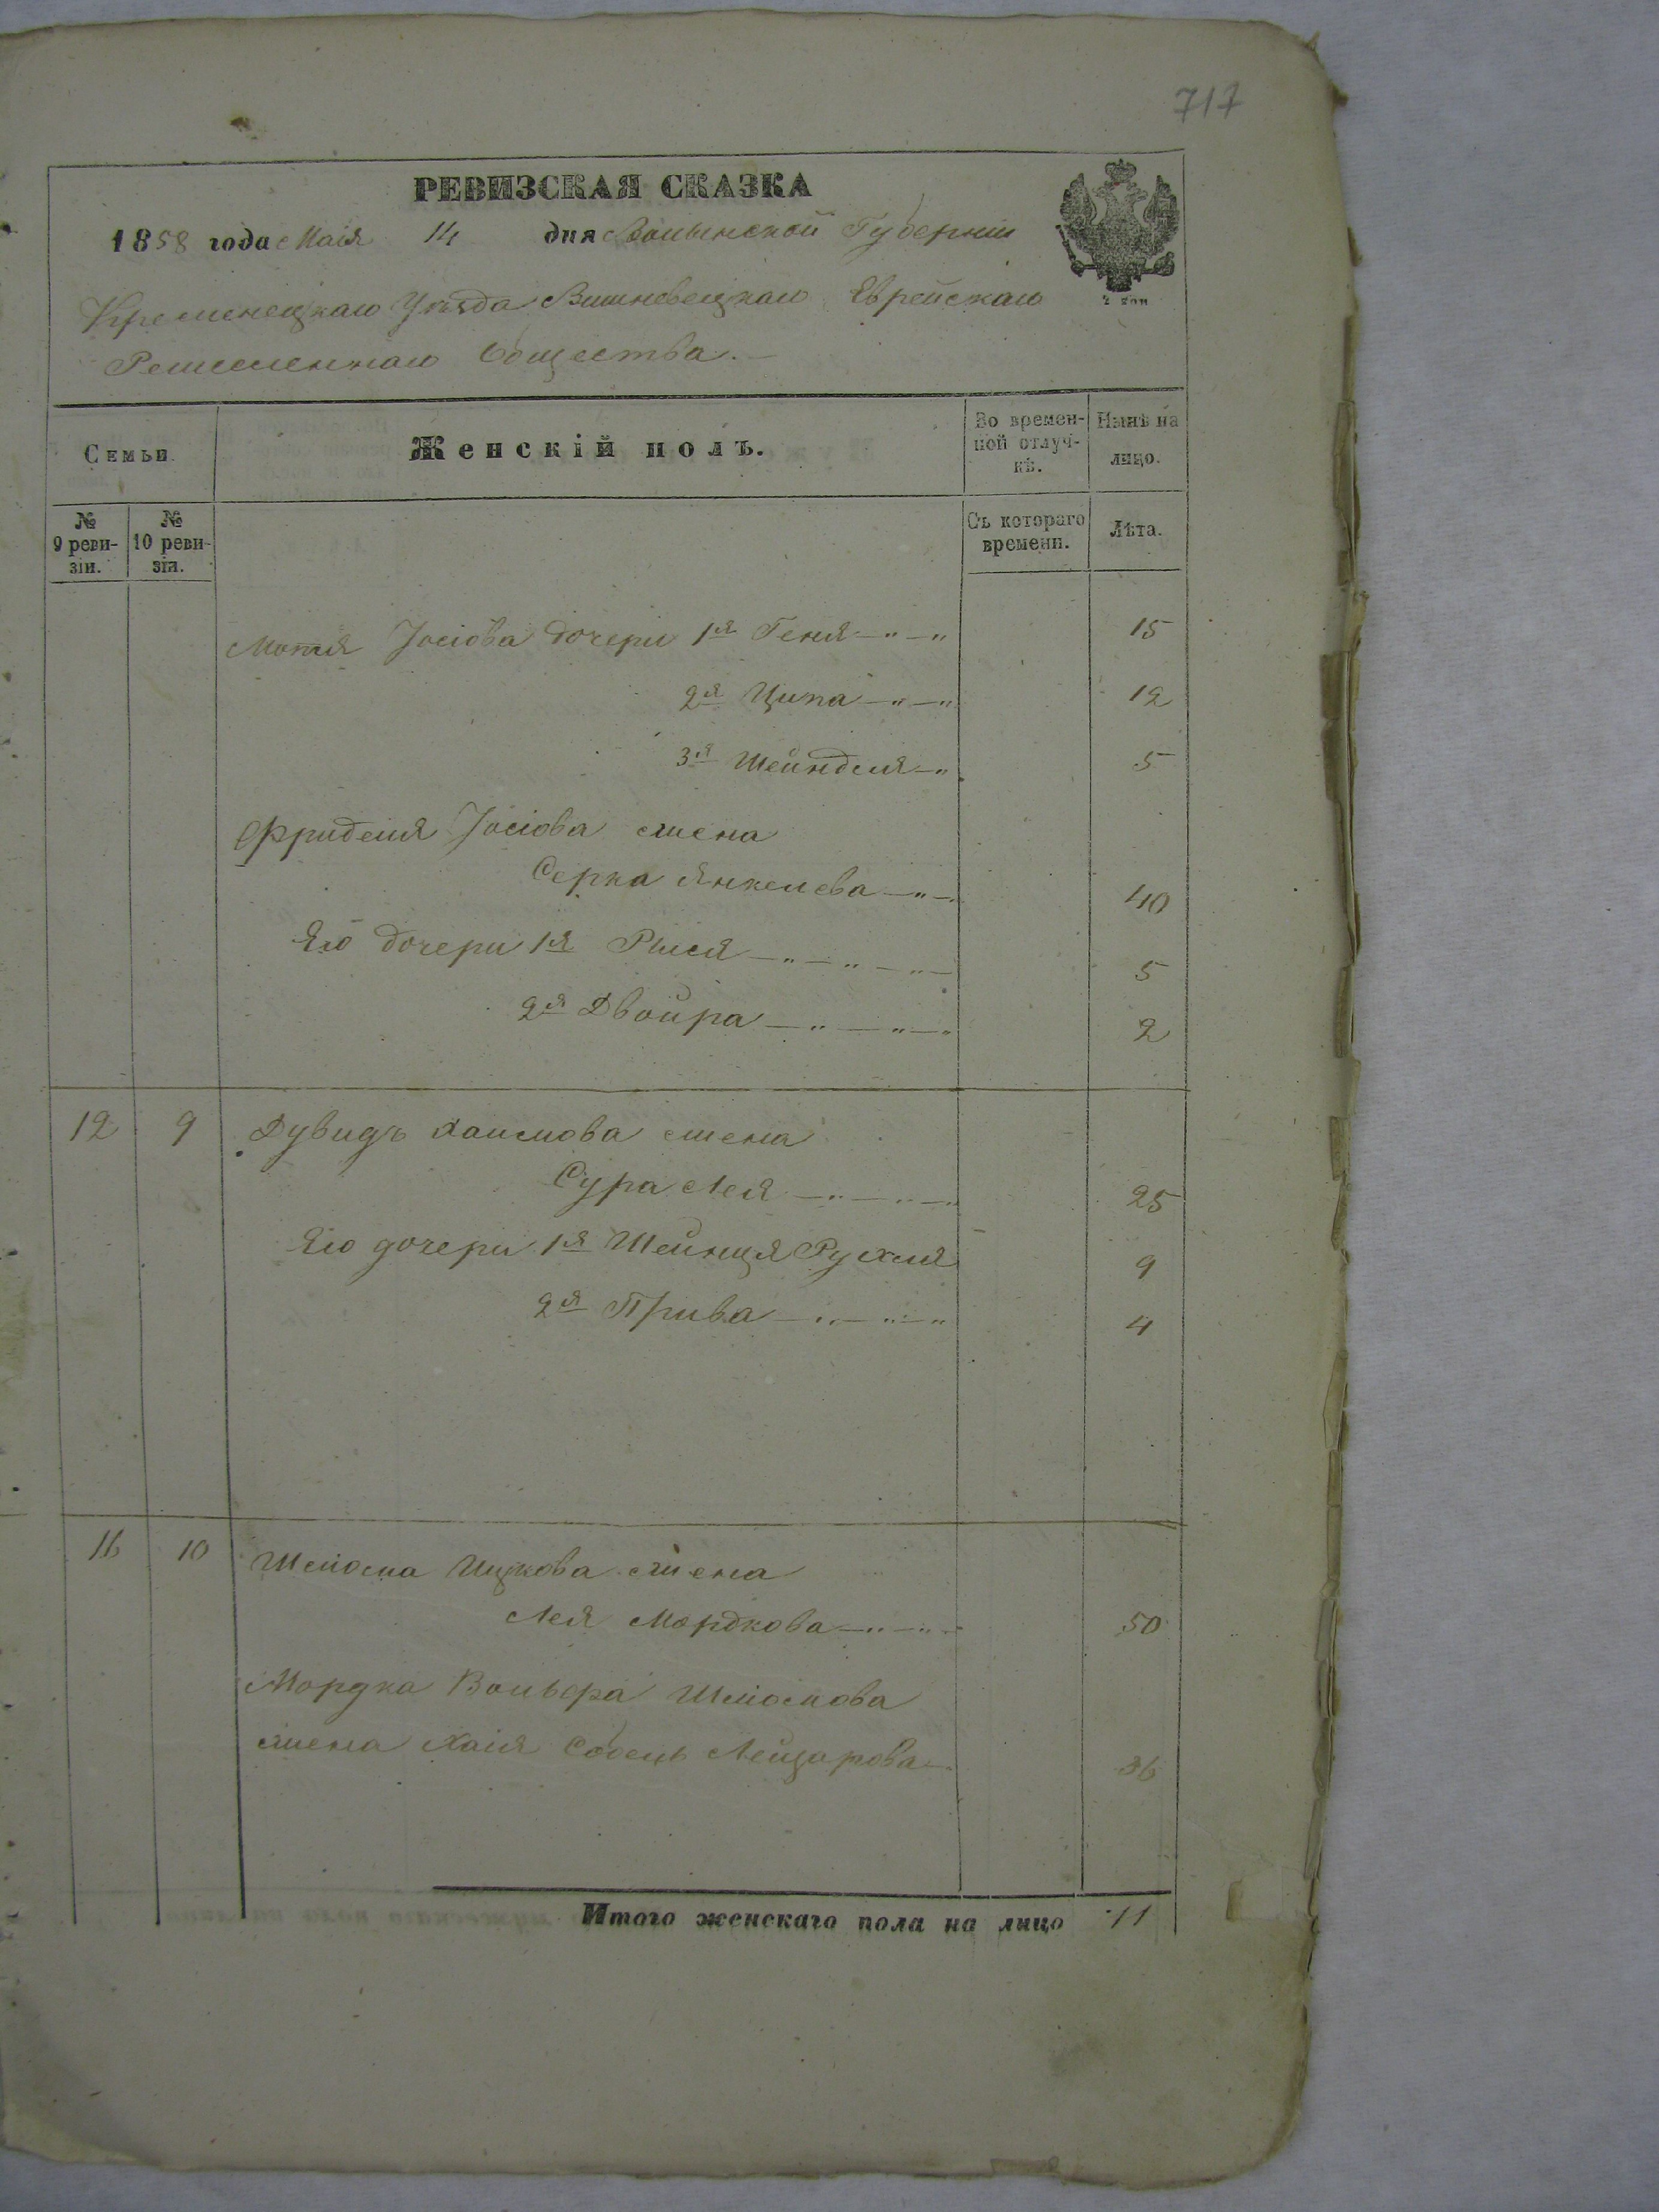 717
РЕВИЗСКАЯ СКАЗКА
1858 года Маія 14 дня Волынской Губерніи
Кременецкаго Уѣзда Вишневецкаго Еврейскаго
Ремесленнаго Общества.
2 коп
Семьи
Женскій полъ.
Во времен-
ной отлуч-
кѣ.
Нынѣ на
лицо.
№
9 реви-
зіи.
№
10 реви-
зіи.
Съ котораго
времени.
Лѣта.
Мотя Іосіова дочери 1я Геня 15
2я Ципа 12
3я Шейндля 5
Фриделя Іосіова жена
Серка Янкелева 40
Его дочери 1я Рыся 5
2я Двойра 2
12 9 Дувидъ Хаимова жена
Сура Лея 25
Его дочери 1я Шейнця Рухля 9
2я Прива 4
16 10 Шліома Ицкова жена
Лея Мордкова 50
Мордка Вольфа Шліомова
жена Хаія Лейзорова 36
Итого женскаго пола на лицо 11